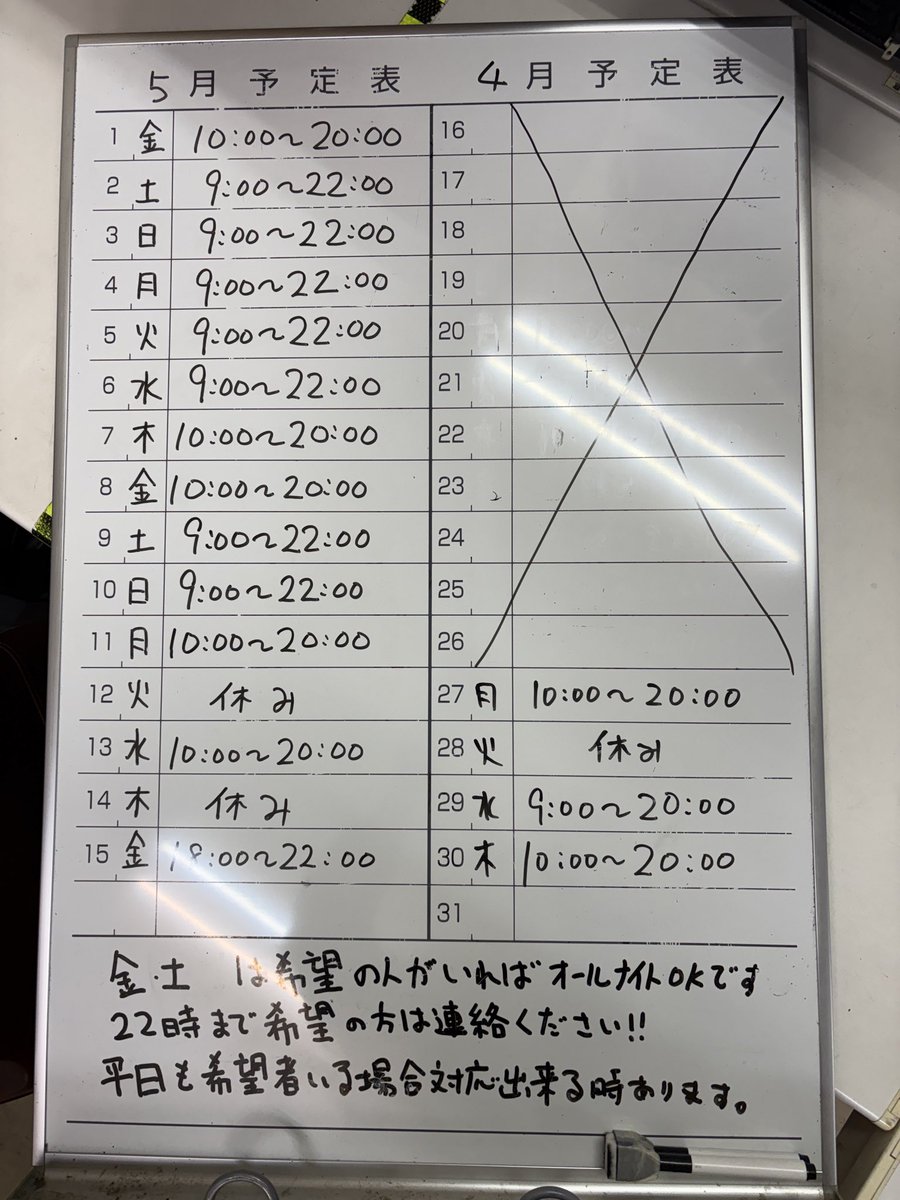 5月予定表
1 金 10:00～20:00
2 土 9:00～22:00
3 日 9:00～22:00
4 月 9:00～22:00
5 火 9:00～22:00
6 水 9:00～22:00
7 木 10:00～20:00
8 金 10:00～20:00
9 土 9:00～22:00
10 日 9:00～22:00
11 月 10:00～20:00
12 火 休み
13 水 10:00～20:00
14 木 休み
15 金 18:00～22:00
4月予定表
16
17
18
19
20
21
22
23
24
25
26
27 月 10:00～20:00
28 火 休み
29 水 9:00～20:00
30 木 10:00～20:00
31
金・土 は希望の人がいればオールナイトOKです
22時まで希望の方は連絡ください!!
平日も希望者いる場合対応出来る時あります。